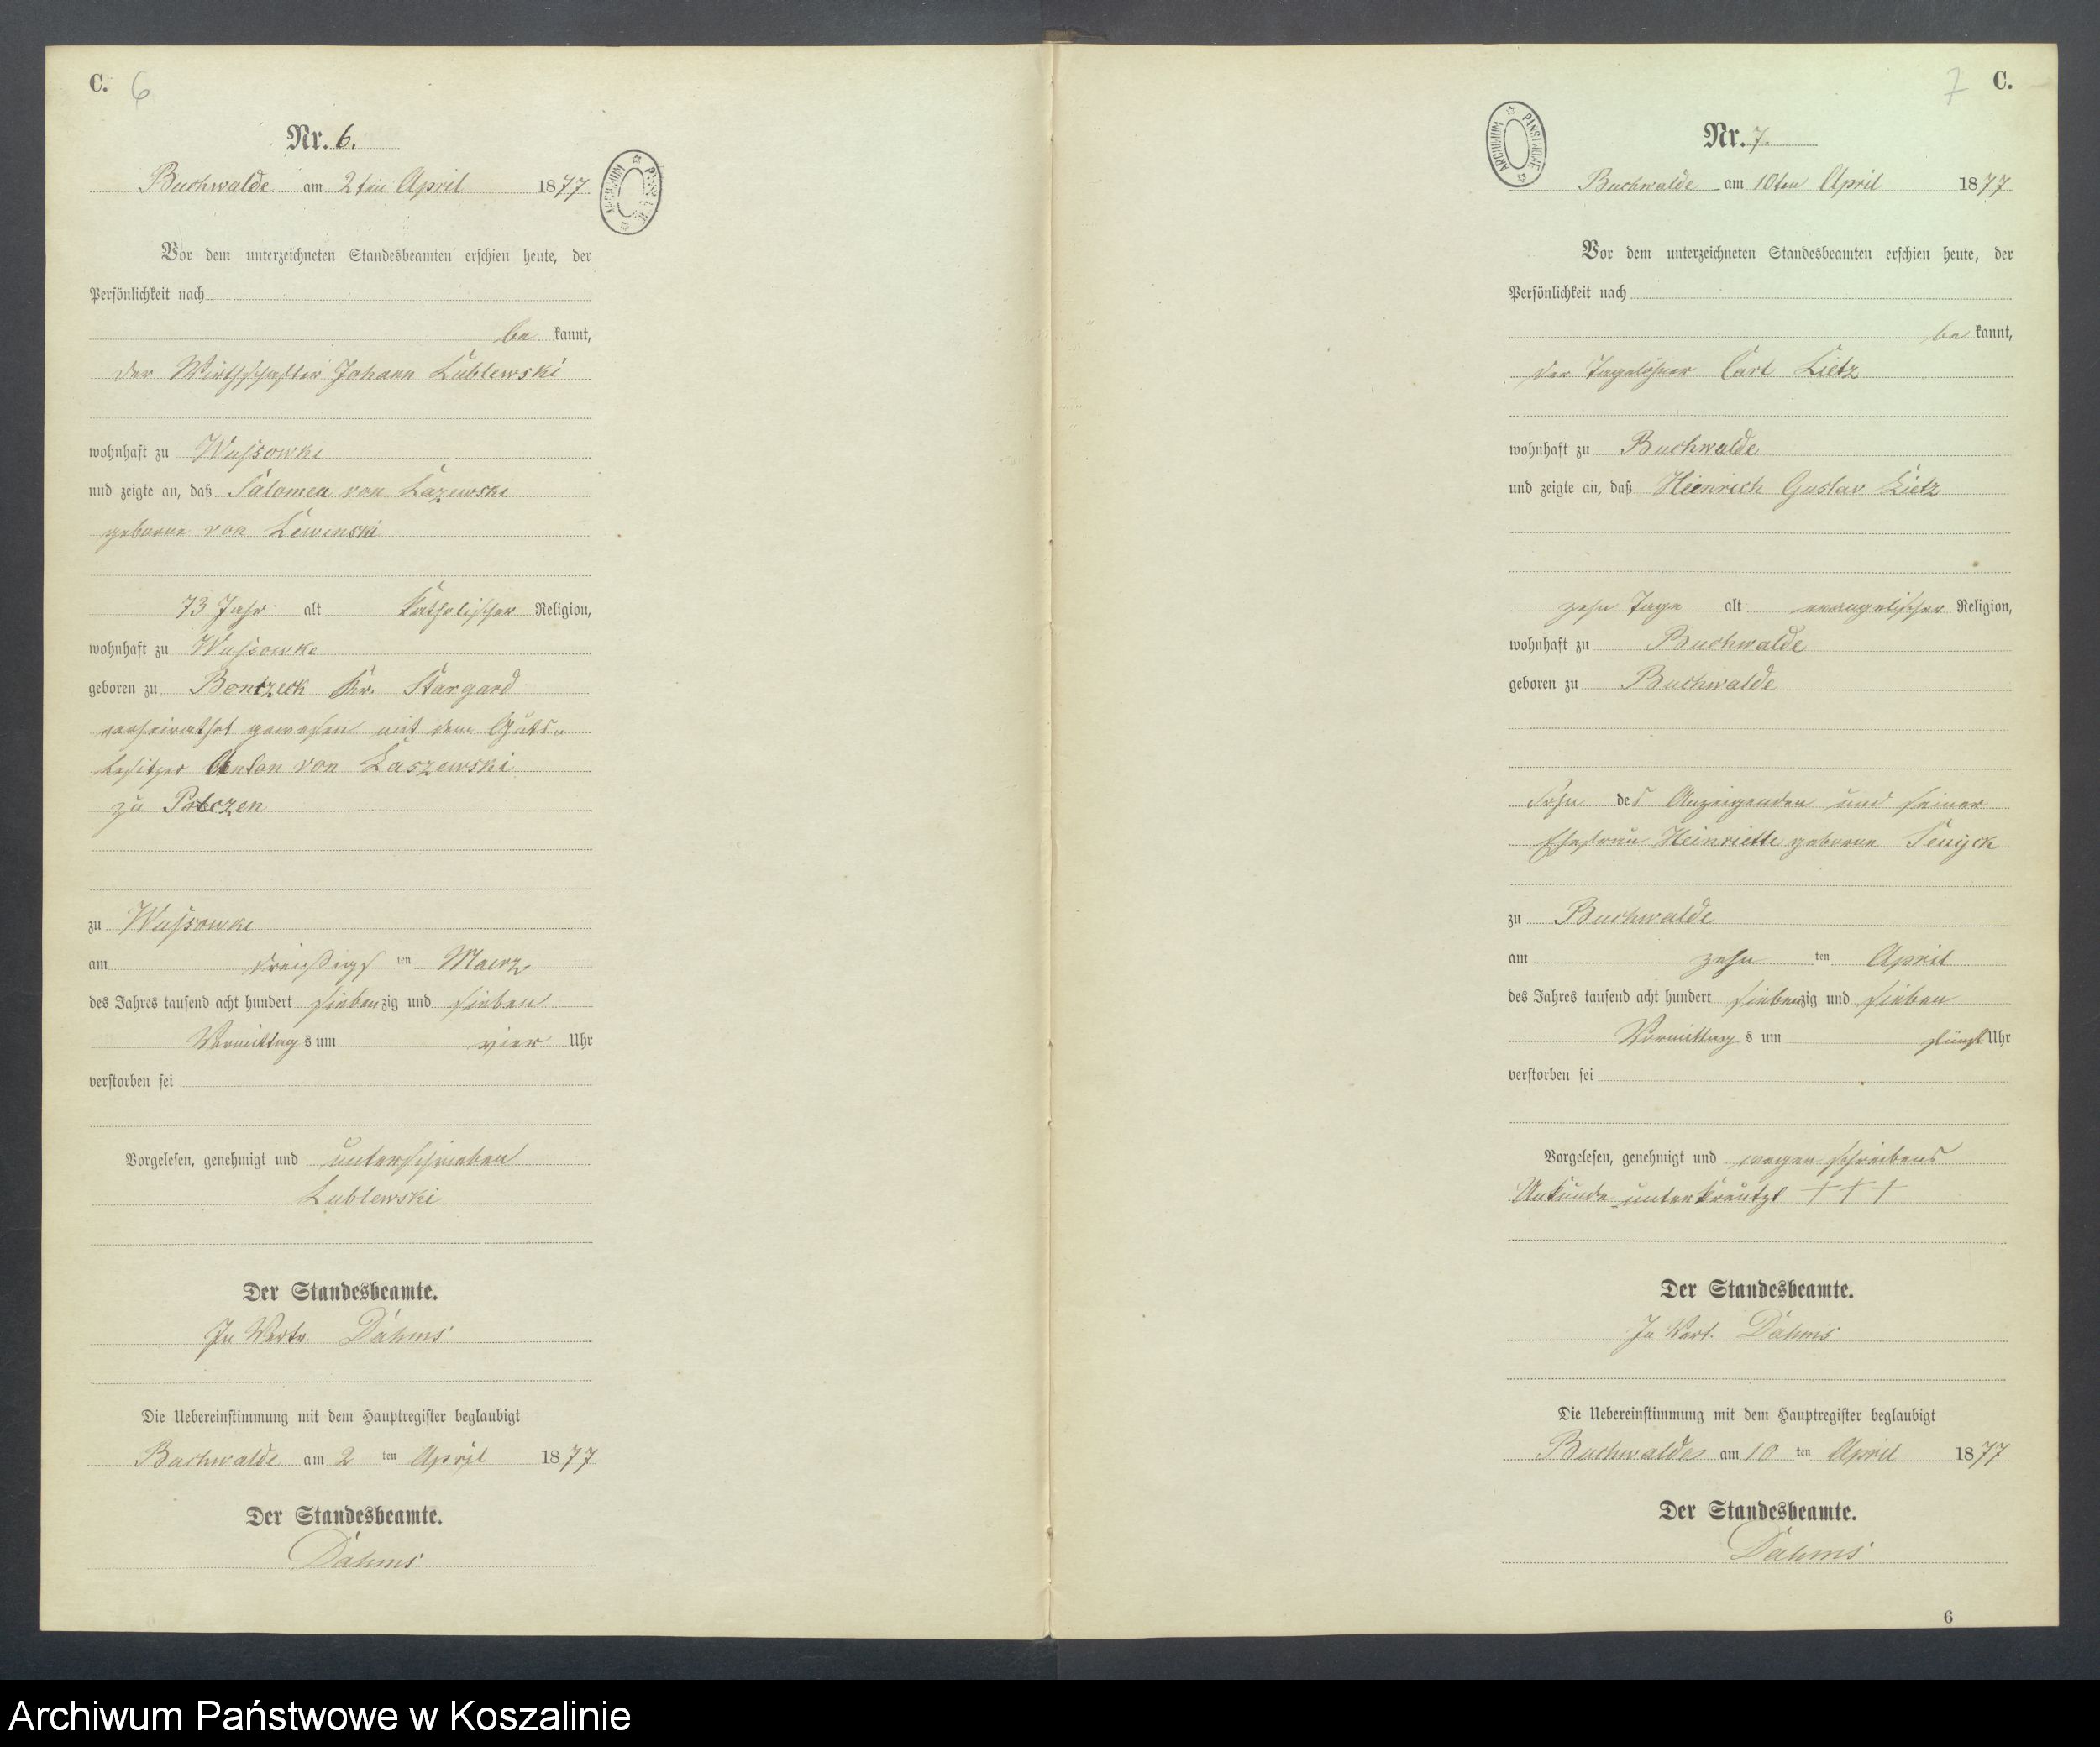 C. 6
Nr. 6.
Buchwalde am 2ten April 1877
ARCHIWUM PAŃSTWOWE
Vor dem unterzeichneten Standesbeamten erschien heute, der
Persönlichkeit nach
be kannt,
der Wirthschafter Johann Lublewski
wohnhaft zu Wussowke
und zeigte an, daß Salomea von Lazewski
geborne von Lewinski
73 Jahr alt katholischer Religion,
wohnhaft zu Wussowke
geboren zu Bontzeck Kr. Stargard
verheirathet gewesen mit dem Guts-
besitzer Anton von Laszewski
zu Polczen
zu Wussowke
am dreißigs ten Maerz
des Jahres tausend acht hundert siebenzig und sieben
Vormittag s um vier Uhr
verstorben sei
Vorgelesen, genehmigt und unterschrieben
Lublewski
Der Standesbeamte.
In Vertr. Dahms
Die Uebereinstimmung mit dem Hauptregister beglaubigt
Buchwalde am 2 ten April 1877
Der Standesbeamte.
Dahms
7 C.
ARCHIWUM PAŃSTWOWE
Nr. 7.
Buchwalde am 10ten April 1877
Vor dem unterzeichneten Standesbeamten erschien heute, der
Persönlichkeit nach
be kannt,
der Tagelöhner Carl Lietz
wohnhaft zu Buchwalde
und zeigte an, daß Heinrich Gustav Lietz
zehn Tage alt evangelischer Religion,
wohnhaft zu Buchwalde
geboren zu Buchwalde
Sohn des Anzeigenden und seiner
Ehefrau Heinriette geborne
zu Buchwalde
am zehn ten April
des Jahres tausend acht hundert siebenzig und sieben
Vormittag s um fünf Uhr
verstorben sei
Vorgelesen, genehmigt und wegen schreibens
Unkunde unterkreutzt + + +
Der Standesbeamte.
In Vert. Dahms
Die Uebereinstimmung mit dem Hauptregister beglaubigt
Buchwalde am 10 ten April 1877
Der Standesbeamte.
Dahms
6
Archiwum Państwowe w Koszalinie